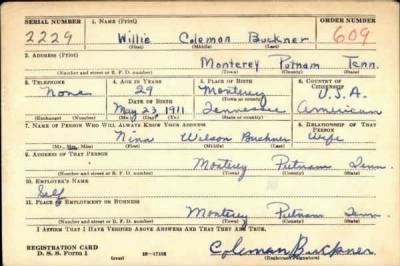 SERIAL NUMBER 1. NAME (Print) ORDER NUMBER
2229 Willie Coleman Buckner 609
(First) (Middle) (Last)
2. ADDRESS (Print)
Monterey Putnam Tenn.
(Number and street or R. F. D. number) (Town) (County) (State)
3. TELEPHONE 4. AGE IN YEARS 5. PLACE OF BIRTH 6. COUNTRY OF CITIZENSHIP
None 29 Monterey U.S.A.
DATE OF BIRTH (Town or county)
May 23, 1911 Tennessee American
(Exchange) (Number) (Mo.) (Day) (Yr.) (State or country)
7. NAME OF PERSON WHO WILL ALWAYS KNOW YOUR ADDRESS 8. RELATIONSHIP OF THAT PERSON
Nina Wilson Buckner Wife
(Mr., Mrs., Miss) (First) (Middle) (Last)
9. ADDRESS OF THAT PERSON
Monterey Putnam Tenn.
(Number and street or R. F. D. number) (Town) (County) (State)
10. EMPLOYER'S NAME
Self
11. PLACE OF EMPLOYMENT OR BUSINESS
Monterey Putnam Tenn.
(Number and street or R. F. D. number) (Town) (County) (State)
I AFFIRM THAT I HAVE VERIFIED ABOVE ANSWERS AND THAT THEY ARE TRUE.
REGISTRATION CARD
D. S. S. Form 1 (over) Coleman Buckner
(Registrant's signature)